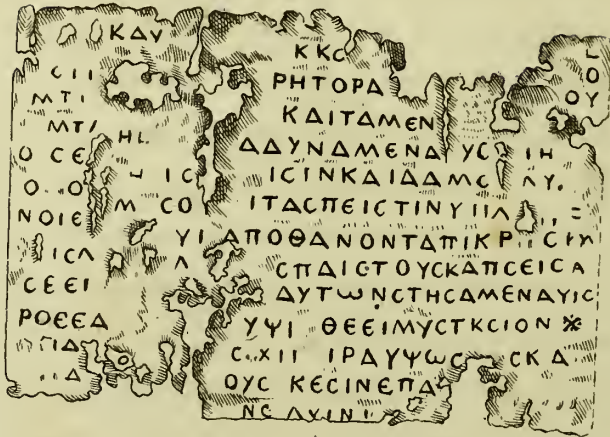 ΚΑΥ
CΙΙ
ΜΤΙ
ΜΤΙ ΗΙ
Ο CΕ
Ο Ο ΙC
ΝΟΙΕ Μ CΟ
ΙCΛ ΥΙ
CΕΕΙ Λ
ΡΟΕΕΔ
ΓΙΔ
Δ
ΚΚC
ΡΗΤΟΡΑ
ΚΑΙΤΑΜΕΝ
ΑΔΥΝΑΜΕΝΑ ΥC ΙΗ
ΙCΙΝΚΑΙΔΑΜC ΛΥ.
ΙΤΑCΠΕΙCΤΙΝΥΙΙΛ
ΑΠΟΘΑΝΟΝΤΑΠΙΚΡ CΙΜ
CΠΔΙCΤΟΥCΚΑΠCΕΙCΑ
ΑΥΤΩΝCΤΗCΑΜΕΝΑΥΙC
ΥΨΙ ΘΕΕΙΜΥCΤΚCΙΟΝ ※
C.ΧΙΙ ΙΡΑΥΨΩC CΚΑ
ΟΥC ΚΕCΙΝΕΠΑ
ΝC ΛΥΙΝΙ
Ο
ΟΥ